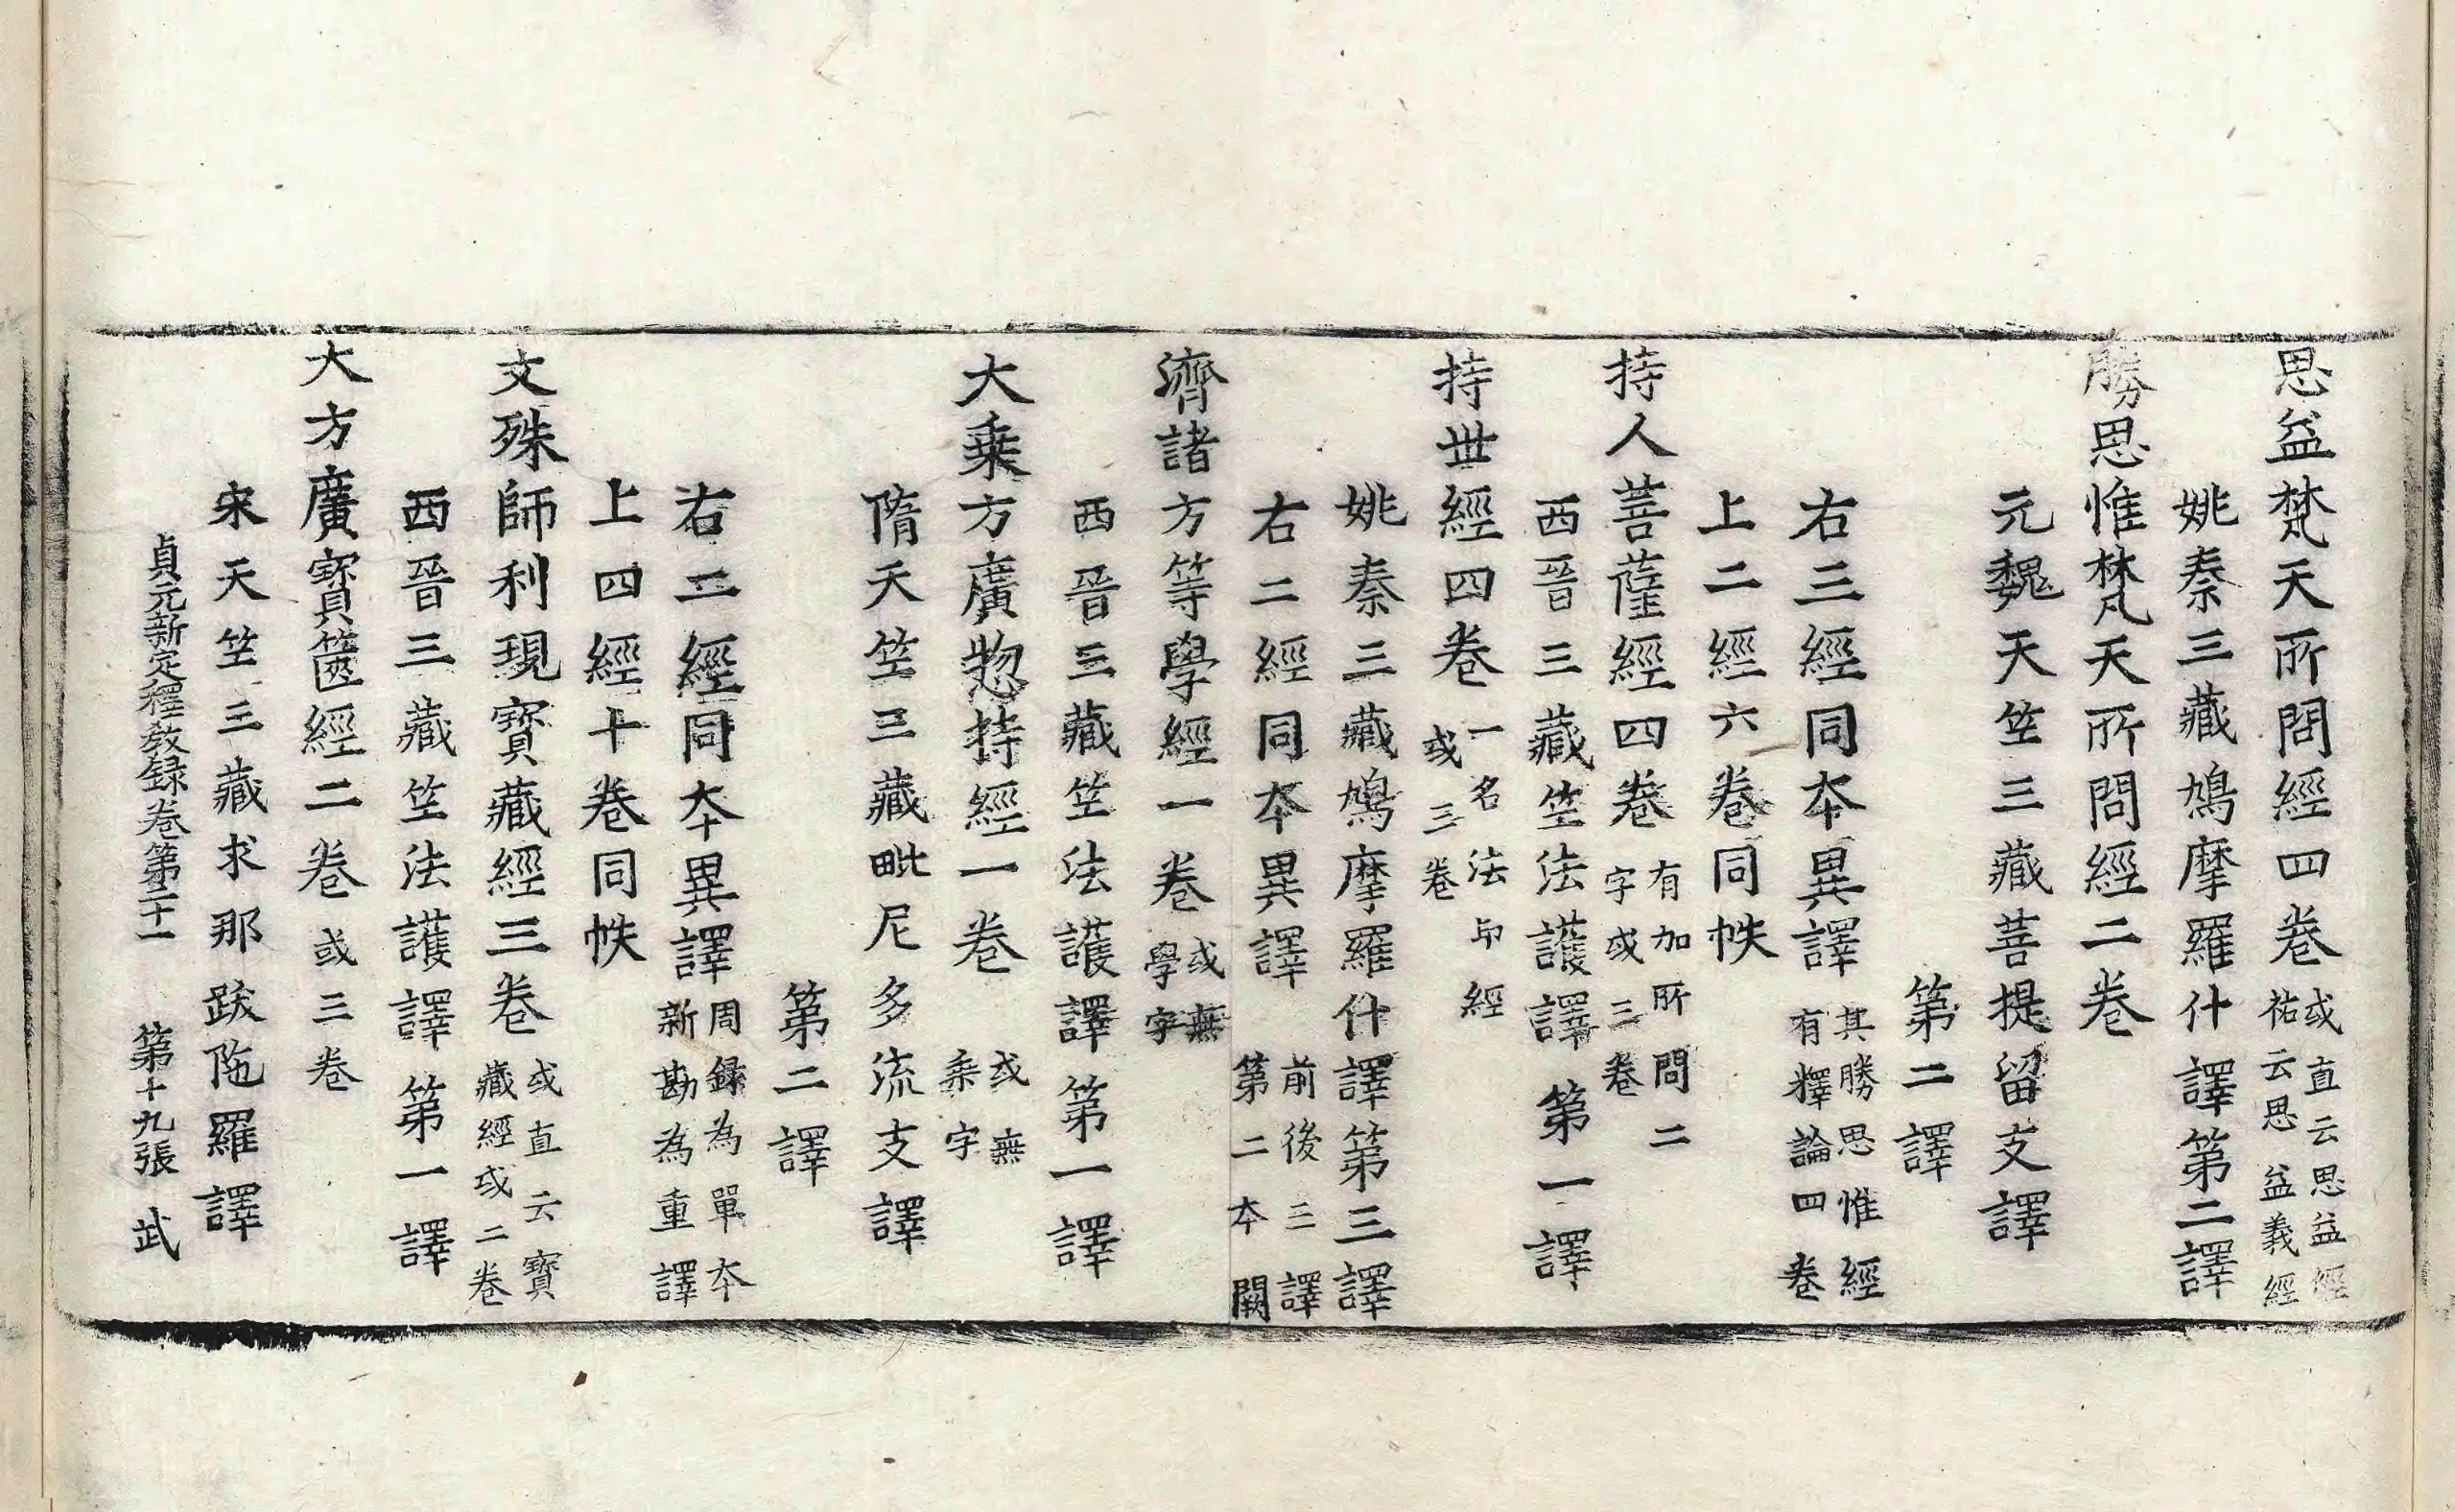 思益梵天所問經四卷或直云思益經祐云思益義經
姚秦三藏鳩摩羅什譯第二譯
勝思惟梵天所問經二卷
元魏天竺三藏菩提留支譯
第二譯
右三經同夲異譯其勝思惟經有釋論四卷
上二經六卷同帙
持人菩薩經四卷有加所問二字或三卷
西晉三藏竺法護譯第一譯
持世經四卷一名法印經或三卷
姚秦三藏鳩摩羅什譯第三譯
右二經同夲異譯前後三譯第二夲闕
濟諸方等學經一卷或無學字
西晉三藏竺法護譯第一譯
大乗方廣惣持經一卷或無乗字
隋天竺三藏毗尼多流支譯
第二譯
右二經同夲異譯周録為單夲新勘為重譯
上四經十卷同帙
文殊師利現寳藏經三卷或直云寳藏經或二卷
西晉三藏竺法護譯第一譯
大方廣寳篋經二卷或三卷
宋天竺三藏求那跋陁羅譯
貞元新定釋敎録卷第二十一 第十九張 武